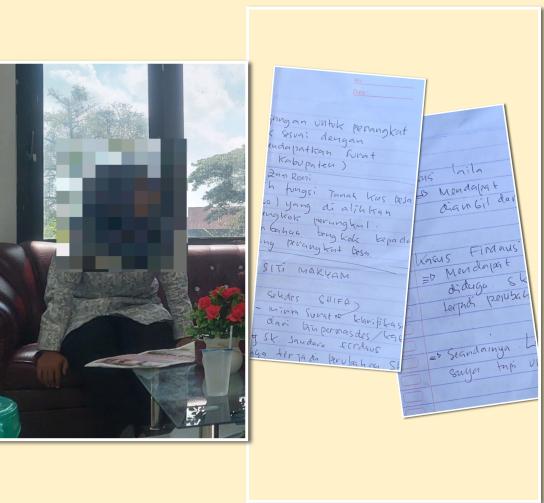 No.
Date
ngan untuk perangkat
sesuai dengan
endapatkan surat
Kabupaten)
Roni
h fungsi Tanah Kas Desa
) yang di alihkan
engkok perangkat.
bahan bengkok kepada
ng perangkat Desa
SITI MARYAM
Sekdes
- minta surat klarifikasi
dari Dinpermasdes
SK saudara
terjadi perubahan S
us laila
=> Mendapat
diambil dar
Kasus Firdaus
=> Mendapat
diduga SK
terjadi perubah
=> Seandainya L
saya tapi